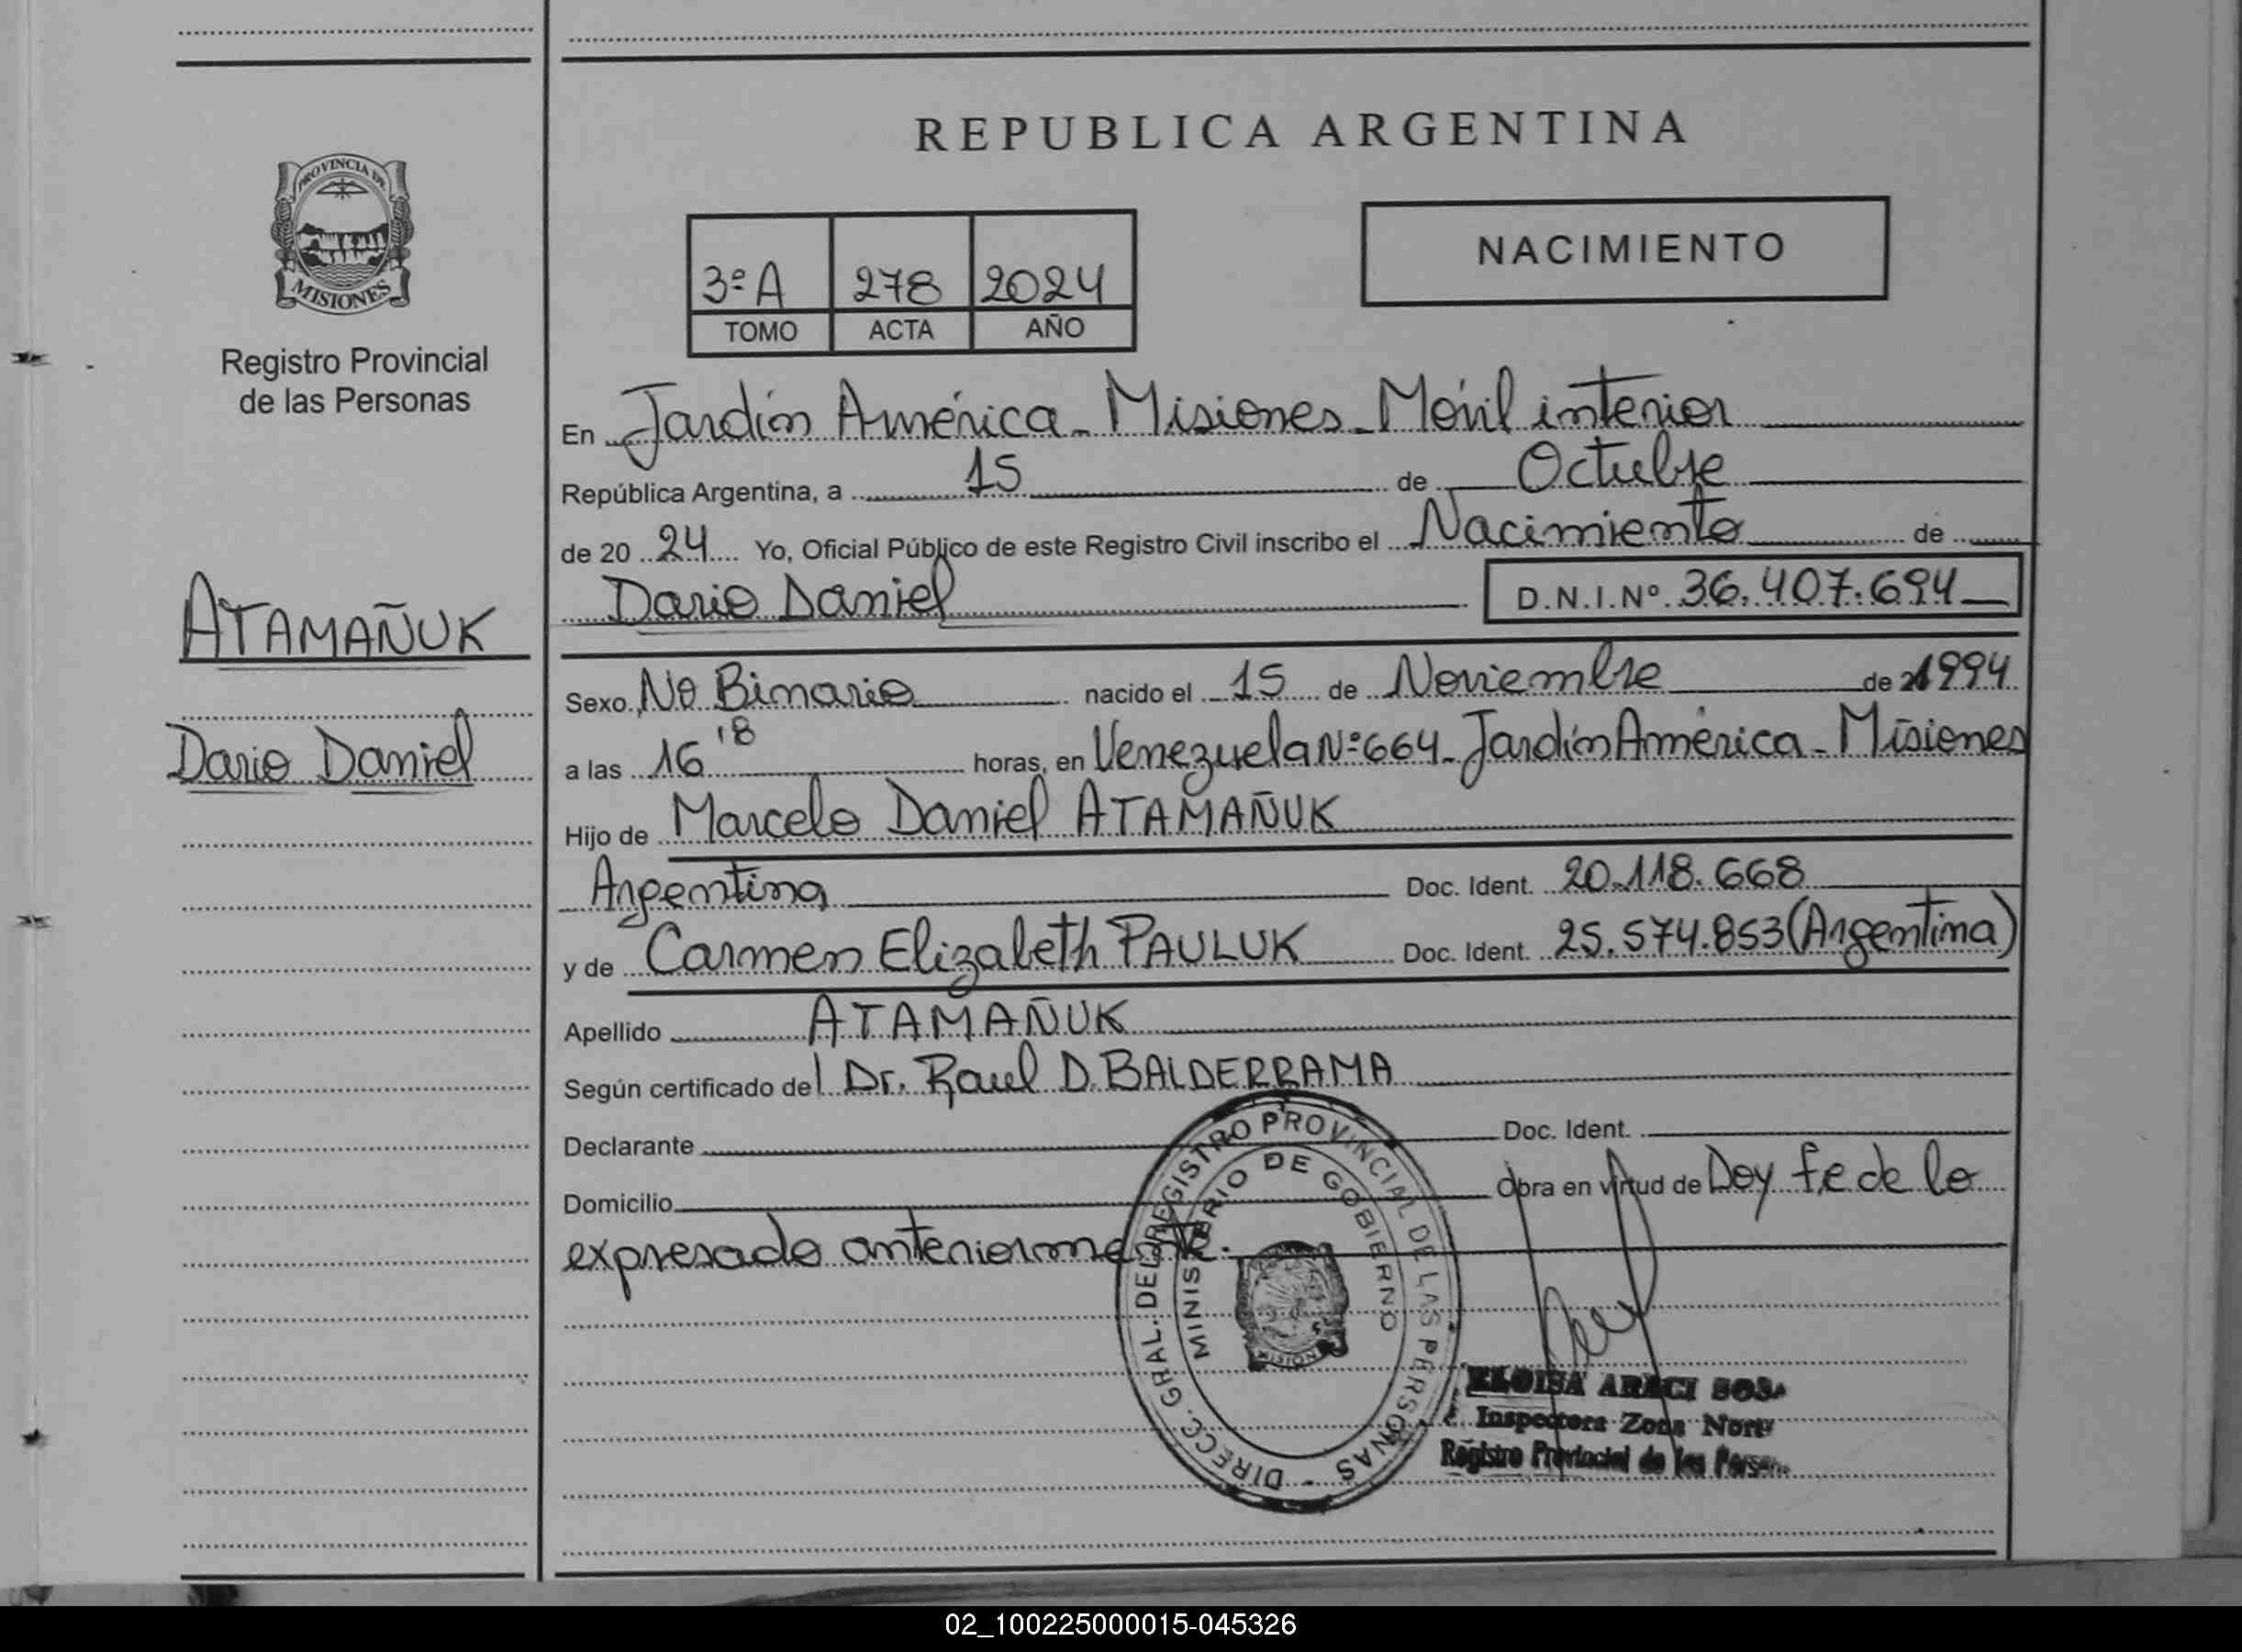 PROVINCIA DE
MISIONES
Registro Provincial
de las Personas
ATAMAÑUK
Dario Daniel
REPUBLICA ARGENTINA
3º A 278 2024
TOMO ACTA AÑO
NACIMIENTO
En Jardín América - Misiones - Móvil interior
República Argentina, a 15 de Octubre
de 20 24 Yo, Oficial Público de este Registro Civil inscribo el Nacimiento de
Dario Daniel D.N.I.Nº 36.407.694
Sexo No Binario nacido el 15 de Noviembre de 1994
a las 16 18 horas, en Venezuela Nº 664 - Jardín América - Misiones
Hijo de Marcelo Daniel ATAMAÑUK
Argentina Doc. Ident. 20.118.668
y de Carmen Elizabeth PAULUK Doc. Ident. 25.574.853 (Argentina)
Apellido ATAMAÑUK
Según certificado del Dr. Raul D. BALDERRAMA
Declarante Doc. Ident.
Domicilio Obra en virtud de Doy fe de lo
expresado anteriormente.
DIRECC. GRAL. DEL REGISTRO PROVINCIAL DE LAS PERSONAS
MINISTERIO DE GOBIERNO
ELOISA ARACI SOSA
Inspectora Zona Norte
Registro Provincial de las Person
02_100225000015-045326